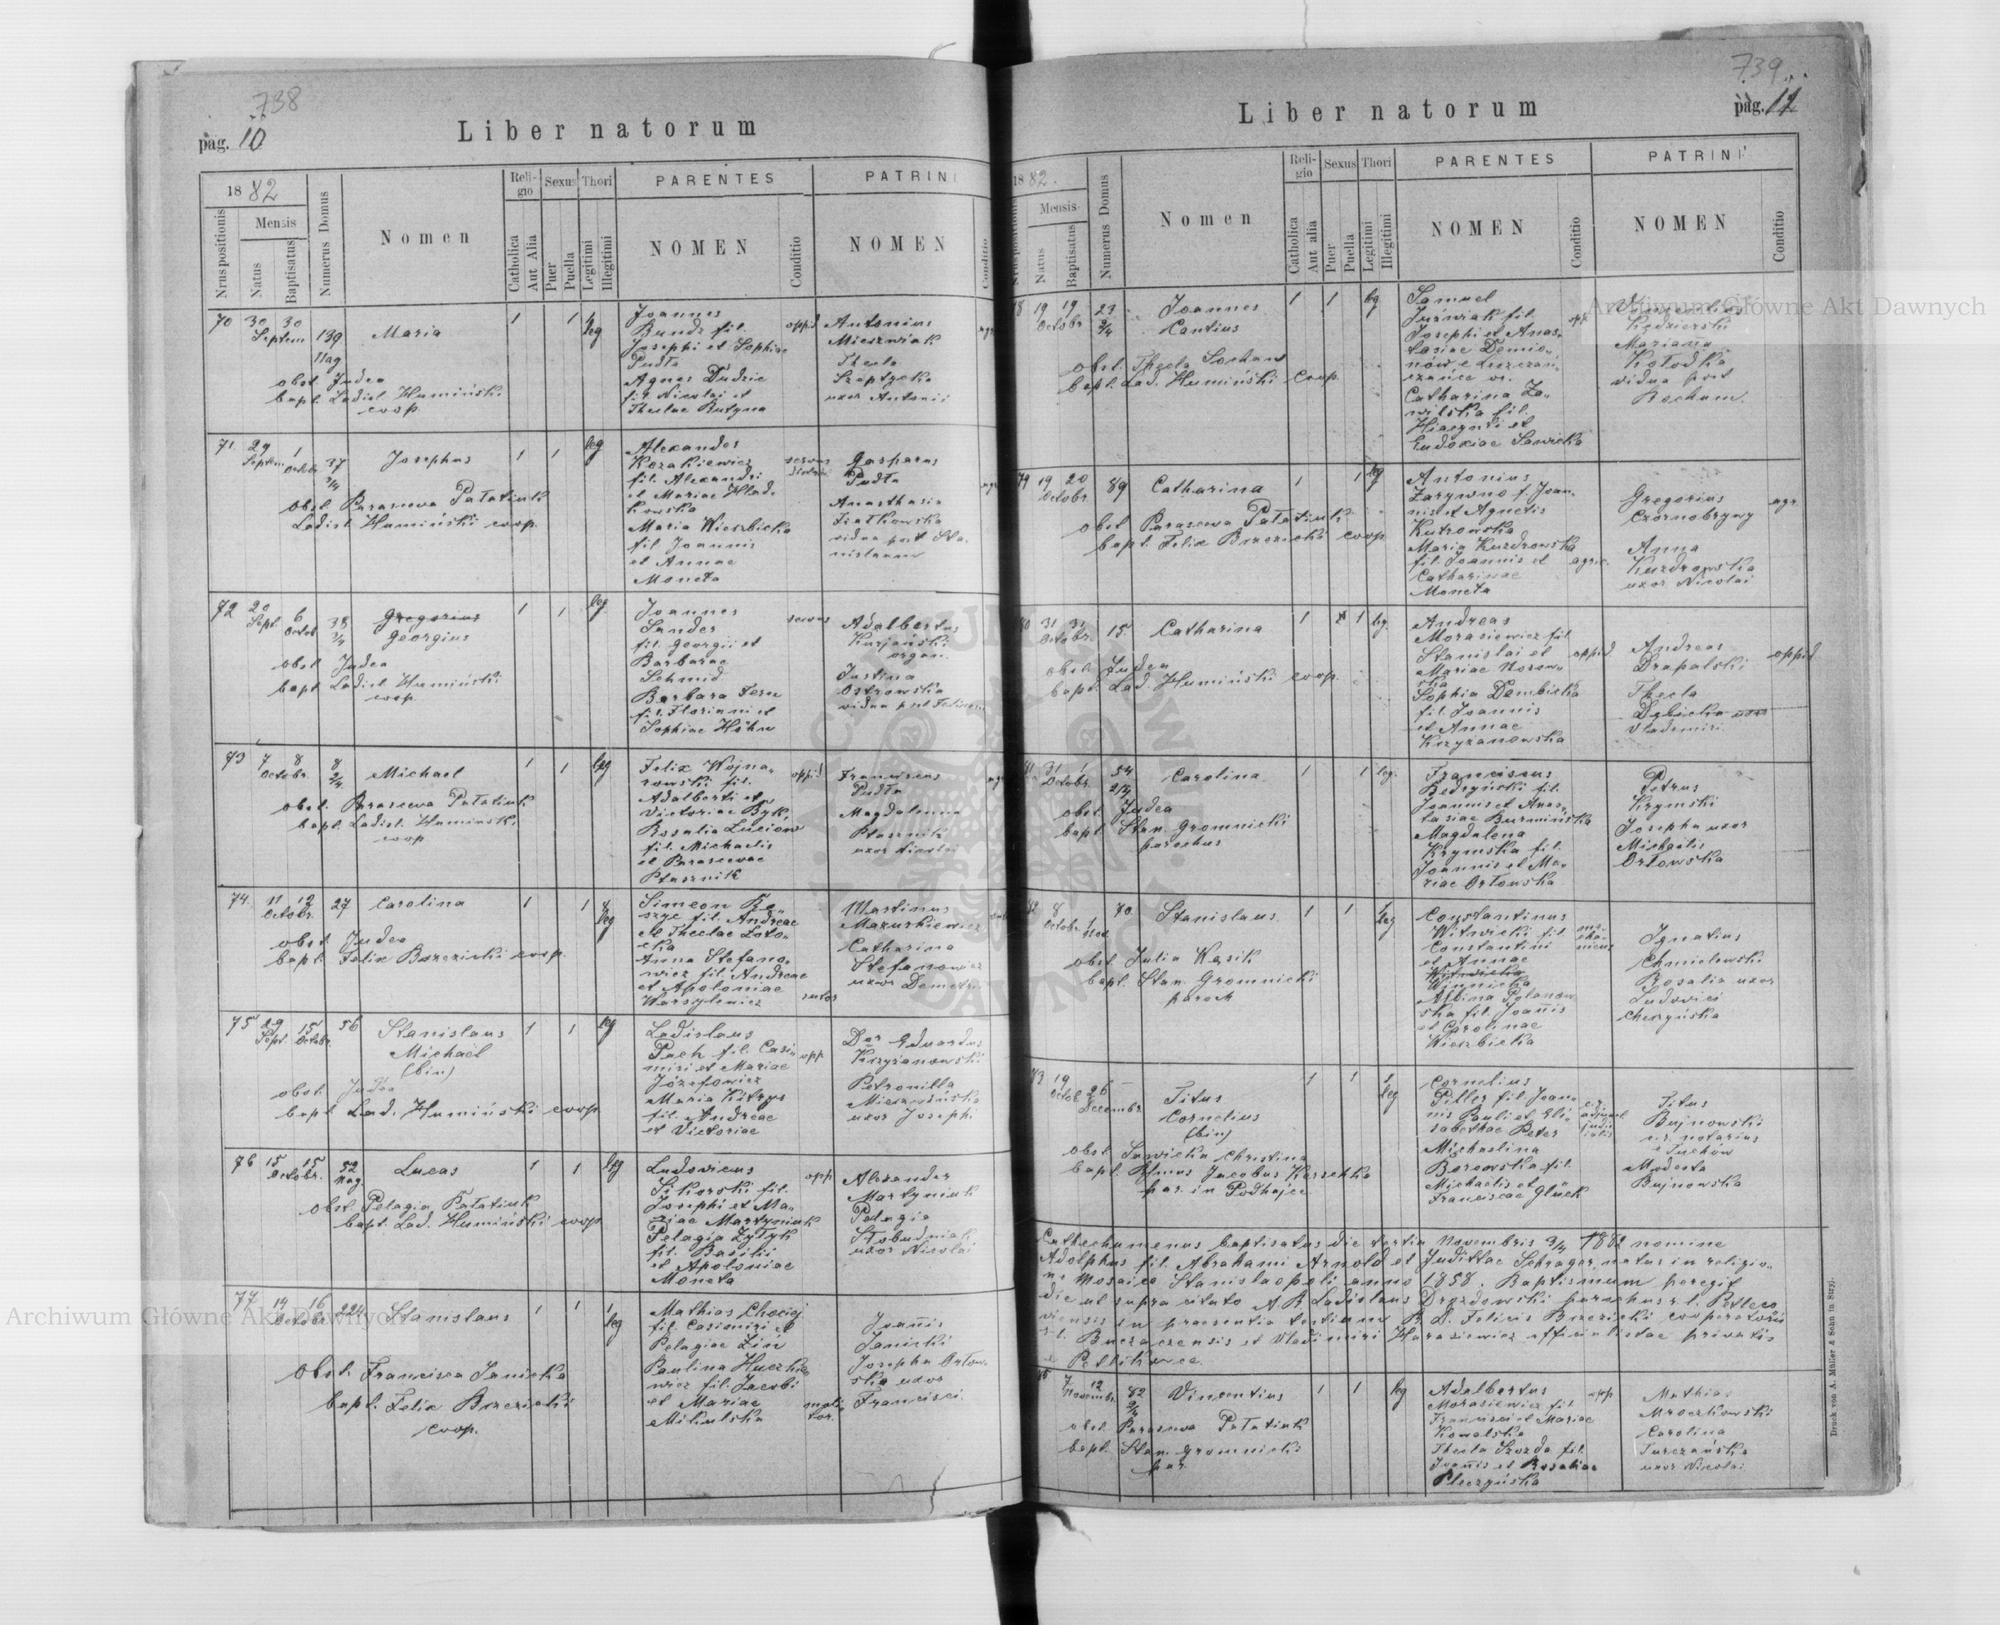 738
pag. 10
Liber natorum
1882
Nrus positionis
Mensis
Natus
Baptisatus
Numerus Domus
Nomen
Religio
Catholica
Aut Alia
Sexus
Puer
Puella
Thori
Legitimi
Illegitimi
PARENTES
NOMEN
Conditio
PATRINI
NOMEN
Conditio
70 30 30
Septem 139
Maria
1 1 leg
obst. Judea
bapt. Ladisl. Humiński
coop.
Joannes
Bundz fil.
Josephi et Sophiae
Pudło
Agnes Dudzic
fil. Nicolai et
Theclae Rutyna
oppid
Antonius
Mieszwiak
Thecla
Szeptycka
uxor Antonii
71 29 1
Septem Octobr 37
3/4
Josephus
1 1 leg
obst. Parascewa Pałatiuk
Ladisl. Humiński coop.
Alexander
Kozakiewicz
fil. Alexandri
et Mariae Hład-
kowska
Maria Wierzbicka
fil Joannis
et Annae
Moneta
servus
Gasparus
Pudło
Anasthasia
Fiałkowska
vidua post Sta-
nislaum
72 20 6
Sept. Octob 38
3/4
Gregorius
Georgius
1 1 leg
obst. Judea
bapt Ladisl. Humiński
coop.
Joannes
Sander
fil. Georgii et
Barbarae
Schmid
Barbara Fern
fil. Floriani et
Sophiae Höhn
servus
Adalbertus
Kurjański
organ.
Justina
Ostrowska
vidua post Felicem
73 7 8 8
Octobr. 2/4
Michael
1 1 leg
obst. Parascewa Pałatiuk
bapt. Ladisl. Humiński
coop
Felix Wojna-
rowski fil.
Adalberti et
Victoriae Byk,
Rosalia Luciow
fil. Michaelis
et Parascevae
Ptasznik
oppid
Franciscus
Pudło
Magdalenna
Ptasznik
uxor Nicolai
74. 11 12 27
Octobr.
Carolina
1 1 leg
obst. Judea
bapt. Felix Brzezicki coop.
Simeon Be-
szyc fil. Andreae
et Theclae Łoto-
cka
Anna Stefano-
wicz fil. Andreae
et Apoloniae
Warsylewicz
sutor
Martinus
Mazurkiewicz
Catharina
Stefanowicz
uxor Demetri
75 29 15 56
Sept. Octobr.
Stanislaus
Michaël
(bin)
1 1 leg
obst. Judea
bapt Lad. Humiński coop.
Ladislaus
Pach fil. Casi-
miri et Mariae
Józefowicz
Maria Kitrys
fil. Andreae
et Victoriae
opp
Dor Eduardus
Krzyżanowski
Petronilla
uxor Josephi
76 15 15 52
Octobr. Nag
Lucas
1 1 leg
obst. Pelagia Pałatiuk
bapt. Lad. Humiński coop
Ludovicus
Sikorski fil.
Josephi et Ma-
riae Martyniuk
Pelagia Zyłyk
fil. Basilii
et Apoloniae
Moneta
opp
Alexander
Martyniuk
Pelagia
Słobudniak
uxor Nicolai
77 14 16 224
Octobr
Stanislaus
1 1 leg
obst. Francisca Janicka
bapt. Felix Brzezicki
coop.
Mathias Chociej
fil. Casimiri et
Pelagiae Lin
Paulina Huczkie
wicz fil. Jacobi
et Mariae
Mikulska
molitor.
Joannis
Janicki
Josepha Orłow-
ska uxor
Francisci.
739
pag. 11
Liber natorum
1882.
Nrus positionis
Mensis
Natus
Baptisatus
Numerus Domus
Nomen
Religio
Catholica
Aut alia
Sexus
Puer
Puella
Thori
Legitimi
Illegitimi
PARENTES
NOMEN
Conditio
PATRINI
NOMEN
Conditio
78 19 19 23
Octobr 2/4
Joannes
Cantius
1 1 leg
obst. Thecla Sochan
bapt. Lad. Humiński coop.
Samuel
Juświak fil.
Josephi et Anas-
tasiae Demio-
Catharina Za-
wilska fil.
Hiacynti et
Eudoxiae Sawicka
opp
Vincentius
Kędzierski
Marianna
Kołodka
vidua post
Rochum.
79 19 20 89
Octobr.
Catharina
1 1 leg
obst. Parascewa Pałatiuk
bapt. Felix Brzezicki coop
Antonius
Zarywno f. Joan-
nis et Agnetis
Kutrowska
Maria Kuzdrowska
fil. Joannis et
Catharinae
Moneta
agric.
Gregorius
Czornobrywy
Anna
Kuzdrowska
uxor Nicolai
agr.
80 31 31 15.
Octobr.
Catharina
1 1 leg
obst. Judea
bapt. Lad. Humiński coop.
Andreas
Morasiewicz fil
Stanislai et
Mariae Nosow-
ska
Sophia Dembicka
fil. Joannis
et Annae
Krzyżanowska
oppid
Andreas
Drapalski
Thecla
Dębicka uxor
Vladimiri.
oppid
81 31 1 54
Octobr. 2/4
Carolina
1 1 leg.
obst. Judea
bapt Stan. Gromnicki
parochus
Franciscus
Bedryński fil.
Joannis et Anas-
tasiae Burmińska
Magdalena
Krymska fil.
Joannis et Ma-
riae Orłowska
Petrus
Krymski
Josepha uxor
Michaëlis
Orłowska
82 8 1 70.
Octobr. Nov.
Stanislaus
1 1 leg
obst. Julia Kęsik
bapt. Stan. Gromnicki
paroch
Constantinus
Witwicki fil.
Constantini
et Annae
Witwicka
Winnicka
Albina Polanow-
ska fil. Joannis
et Carolinae
Wierzbicka
mechanicus
Ignatius
Chmielewski
Rosalia uxor
Ludovici
Cherzyńska
83 19 26
Octobr Decembr.
Titus
Cornelius
(bin)
1 1 leg
obst. Sawicka Christina
bapt. Rsmus Jacobus Kerschka
par. in Podhajce
Cornelius
Piller fil Joan-
nis Pauli et Eli-
sabethae Peter
Michaelina
Borowska fil.
Michaelis et
Franciscae Gluck
Titus
Bujnowski
c.r. notarius
e Tuchów
Modesta
Bujnowska
Cathechumenus baptisatus die tertia Novembris 3/11 1882 nomine
Adolphus fil. Abrahami Arnold et Judittae Schrager, natus in religio-
ne Mosaica Stanislaopoli anno 1858. Baptismum peregit
die ut supra citato A. R. Ladislaus Drozdowski parochus r. l. Petleco
viensis in praesentia testium R. D. Felicis Brzezicki cooperatoris
r. l. Buczaczensis et Vladimiri Harasiewicz officialistae privatis
e Petlikowce.
85 7 12 82
Novembr. 2/4
Vincentius
1 1 leg
obst. Parascewa Pałatiuk
bapt. Stan. Gromnicki
par.
Adalbertus
Morasiewicz fil
Francisci et Mariae
Kowalska
Thecla Szozda fil.
Joannis et Rosaliae
Pleczyńska
opp
Mathias
Mroczkowski
Carolina
Turczańska
uxor Nicolai
Druck von A. Müller & Sohn in Stryj.
Archiwum Główne Akt Dawnych
Archiwum Główne Akt Dawnych